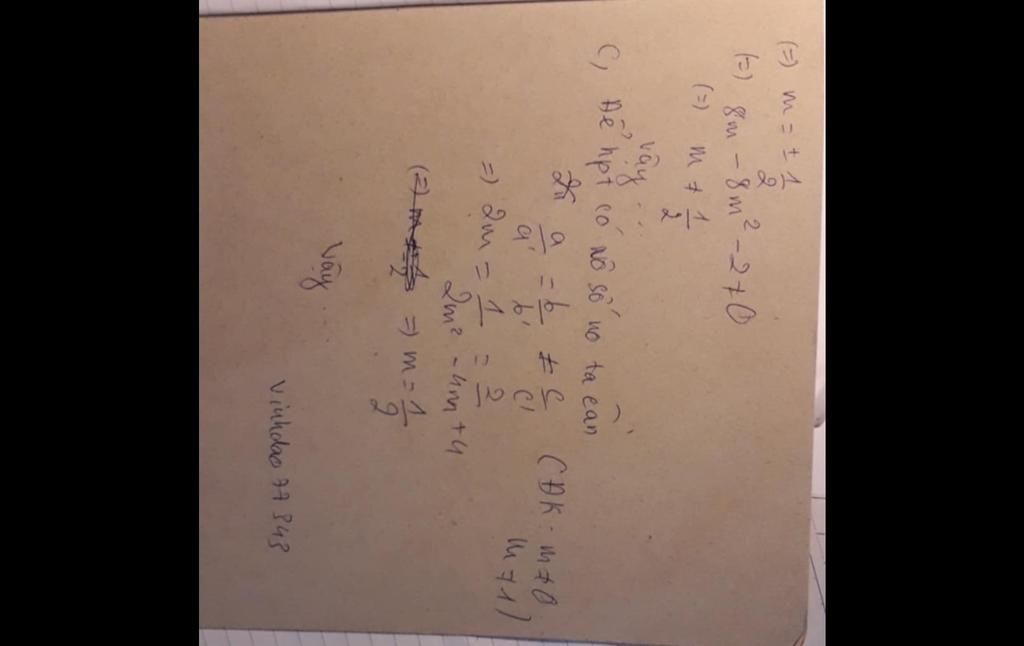 (=) m = ± 1/2
(=) 8m - 8m² - 2 ≠ 0
(=) m ≠ 1/2
Vậy...
C, Để hpt có vô số no ta cần
a/a' = b/b' ≠ c/c' (ĐK: m ≠ 0
m ≠ 1)
=) 2m = 1/2m² = 2/-4m+4
=) m = 1/2
Vậy...
vinhdao77848